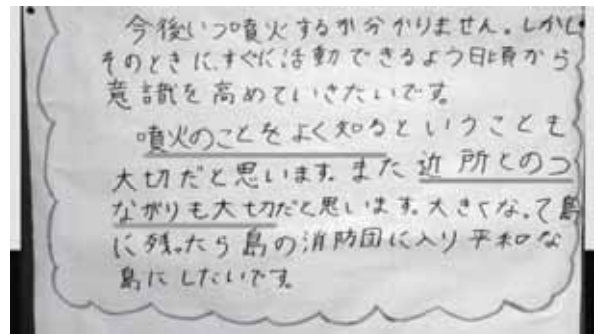 今後いつ噴火するか分かりません。しかし
そのときに、すぐに活動できるよう日頃から
意識を高めていきたいです。
噴火のことをよく知るということも
大切だと思います。また近所とのつ
ながりも大切だと思います。大きくなって島
に残ったら島の消防団に入り平和な
島にしたいです。